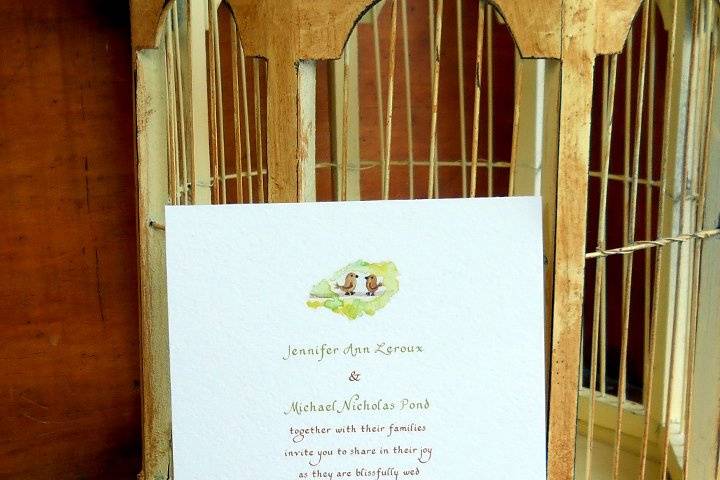 Jennifer Ann Leroux
&
Michael Nicholas Pond
together with their families
invite you to share in their joy
as they are blissfully wed